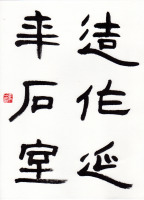 造作延
年石室